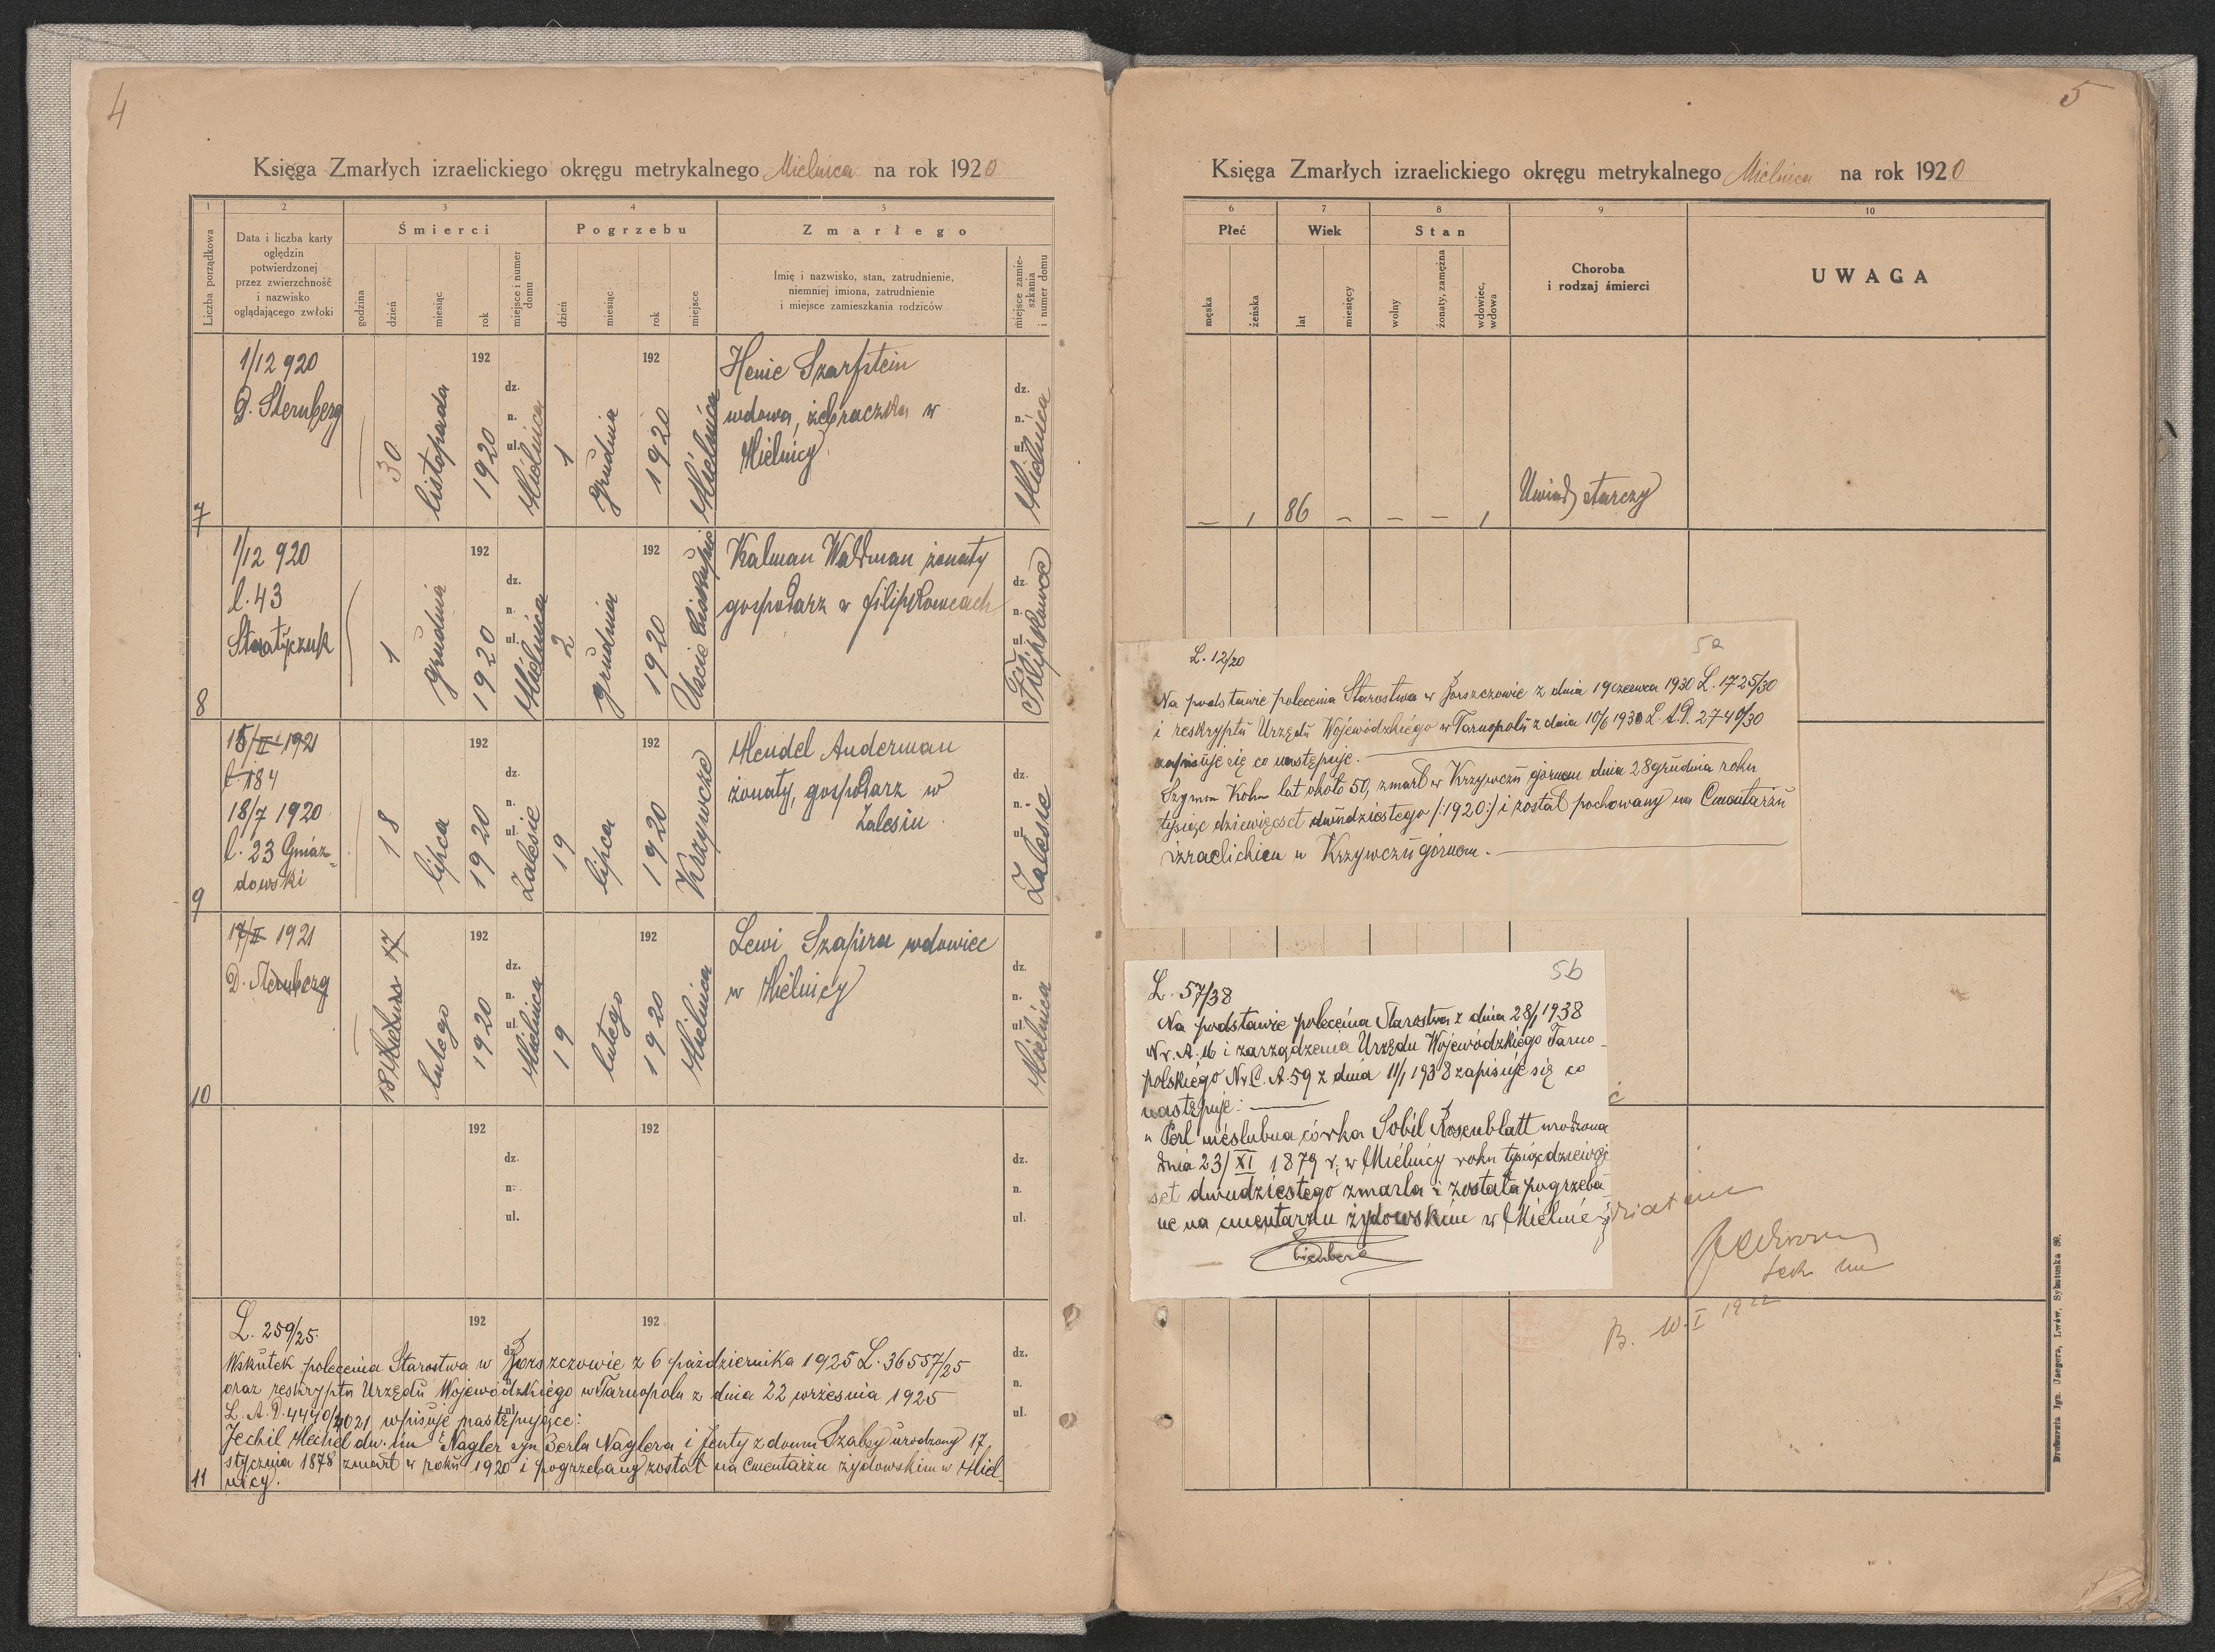 4
Księga Zmarłych izraelickiego okręgu metrykalnego Mielnica na rok 1920
1 2 3 4 5
Liczba porządkowa
Data i liczba karty
oględzin
potwierdzonej
przez zwierzchność
i nazwisko
oglądającego zwłoki
Śmierci
godzina dzień miesiąc rok miejsce i numer domu
Pogrzebu
dzień miesiąc rok miejsce
Zmarłego
Imię i nazwisko, stan, zatrudnienie,
niemniej imiona, zatrudnienie
i miejsce zamieszkania rodziców
miejsce zamieszkania i numer domu
7
1/12 920
D. Sternberg
30 listopada 192 1920 dz. n. ul. Mielnica
1 grudnia 192 1920 Mielnica
Henie Szarfstein
wdowa, żebraczka w
Mielnicy
dz. n. ul. Mielnica
8
1/12 920
l. 43
Staratijczuk
1 grudnia 192 1920 dz. n. ul. Mielnica
2 grudnia 192 1920 Uscie Biskupie
Kalman Waldman żonaty
gospodarz w Filipkowcach
dz. n. ul. Filipkowce
9
15/II 1921
l 184
18/7 1920
l. 23 Gniaz-
dowski
18 lipca 192 1920 dz. n. ul. Zalesie
19 lipca 192 1920 Krzywcze
Mendel Anderman
żonaty, gospodarz w
Zalesiu
dz. n. ul. Zalesie
10
17/II 1921
D. Sternberg
18 17 lutego 192 1920 dz. n. ul. Mielnica
19 lutego 192 1920 Mielnica
Lewi Szapira wdowiec
w Mielnicy
dz. n. ul. Mielnica
192 dz. n. ul. 192 dz. n. ul.
11
192 dz. n. ul. 192 dz. n. ul.
L. 259/25.
Wskutek polecenia Starostwa w Borszczowie z 6 października 1925 L. 36557/25
oraz reskryptu Urzędu Wojewódzkiego w Tarnopolu z dnia 22 września 1925
L. A. D. 4440/4021 wpisuje następujące:
Jechil Mechel dw. im Nagler syn Berla Naglera i Jenty z domu Szabsy urodzony 17
stycznia 1878 zmarł w roku 1920 i pogrzebany został na cmentarzu żydowskim w Miel-
nicy.
5
Księga Zmarłych izraelickiego okręgu metrykalnego Mielnica na rok 1920
6 7 8 9 10
Płeć
męska żeńska
Wiek
lat miesięcy
Stan
wolny żonaty, zamężna wdowiec, wdowa
Choroba
i rodzaj śmierci
UWAGA
– 1 86 – – – 1 Uwiąd starczy
5a
L. 12/20
Na podstawie polecenia Starostwa w Borszczowie z dnia 19 czerwca 1930 L. 1725/30
i reskryptu Urzędu Wojewódzkiego w Tarnopolu z dnia 10/6 1930 L. A. D. 2740/30
zapisuje się co następuje.
Szymon Kohn lat około 50, zmarł w Krzywczu górnem dnia 28 grudnia roku
tysiąc dziewięcset dwudziestego /:1920:/ i został pochowany na Cmentarzu
izraelickiem w Krzywczu górnem.
5b
L. 57/38
Na podstawie polecenia Starostwa z dnia 28/1 1938
Nr. A. 16 i zarządzenia Urzędu Wojewódzkiego Tarno-
polskiego Nr. C. A. 59 z dnia 11/1 1938 zapisuje się co
następuje:
Perl nieślubna córka Sobil Rosenblatt urodzona
dnia 23/XI 1879 r. w Mielnicy roku tysiąc dziewięć
set dwudziestego zmarła i została pogrzeba
ne na cmentarzu żydowskim w Mielnicy
B. 10. I 1922
Drukarnia Ign. Jaegera, Lwów, Sykstuska 33.